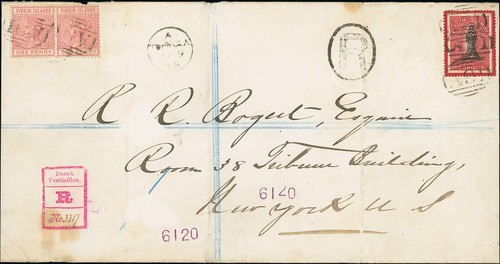 VIRGIN ISLANDS
VIRGIN ISLANDS
ONE PENNY
A
R
R. R. Bogert, Esquire
Room 38 Tribune Building,
6120
New York U S
6120
Dansk
Vestindien.
R
No. 3317